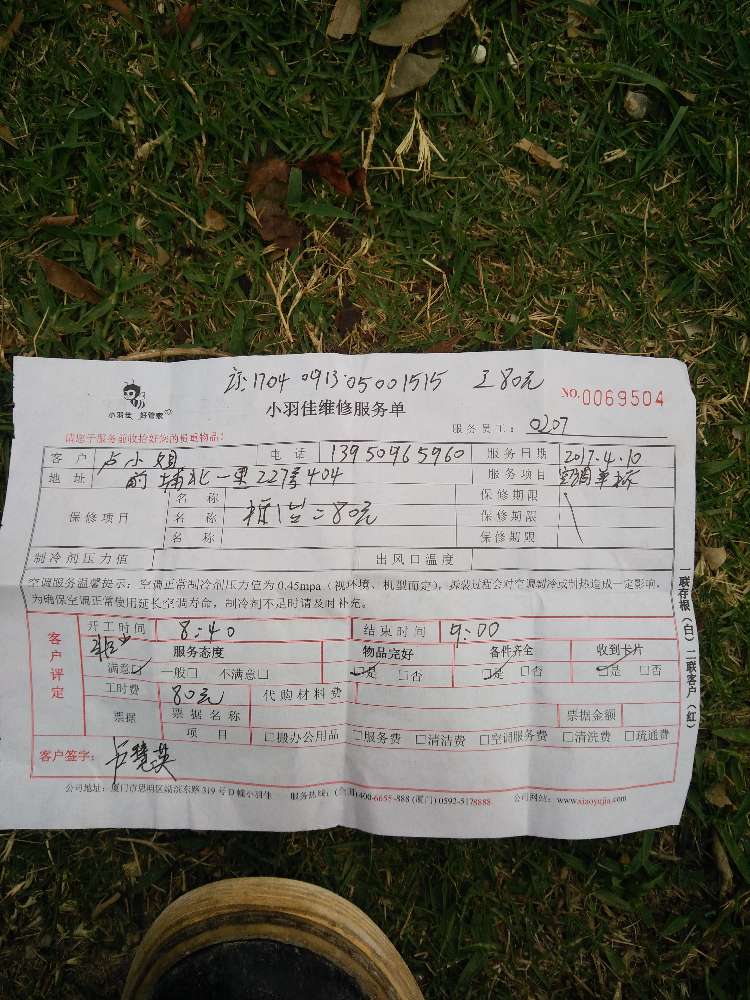 1704 0913 05001515 80元
小羽佳 好管家
小羽佳维修服务单
NO.0069504
请您于服务前收拾好您的贵重物品!
服务员工: 0207
客户 卢小姐 电话 13950965960 服务日期 2017.4.10
地址 前埔北一里227号404 服务项目 空调
名称 保修期限
保修项目 名称 80元 保修期限
名称 保修期限
制冷剂压力值 出风口温度
空调服务温馨提示:空调正常制冷剂压力值为0.45mpa(视环境、机型而定),拆装过程会对空调制冷或制热造成一定影响,
为确保空调正常使用延长空调寿命,制冷剂不足时请及时补充。
一联存根(白)二联客户(红)
客户评定
开工时间 8:40 结束时间 9:00
服务态度 物品完好 备件齐全 收到卡片
满意☑ 一般□ 不满意□ ☑是 □否 ☑是 □否 ☑是 □否
工时费 80元 代购材料费
票据 票据名称 票据金额
项目 □搬办公用品 □服务费 □清洁费 □空调服务费 □清洗费 □疏通费
客户签字: 卢慧英
公司地址:厦门市思明区湖滨东路319号D幢小羽佳 服务热线:(全国)400-6655-888 (厦门) 0592-5178888 公司网站:www.xiaoyujia.com